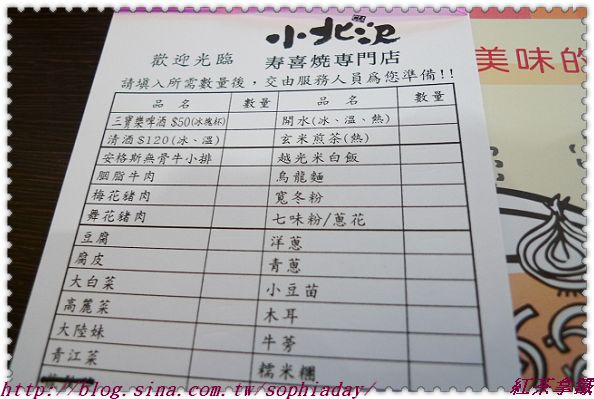 小北沢
歡迎光臨 寿喜燒専門店
請填入所需數量後，交由服務人員為您準備!!
品名 數量 品名 數量
三寶樂啤酒 $50(冰塊杯) 開水(冰、溫、熱)
清酒 $120(冰、溫) 玄米煎茶(熱)
安格斯無骨牛小排 越光米白飯
胭脂牛肉 烏龍麵
梅花豬肉 寬冬粉
舞花豬肉 七味粉/蔥花
豆腐 洋蔥
腐皮 青蔥
大白菜 小豆苗
高麗菜 木耳
大陸妹 牛芳
青江菜 糯米糰
美味的
http://blog.sina.com.tw/sophiaday/
紅茶拿鐵